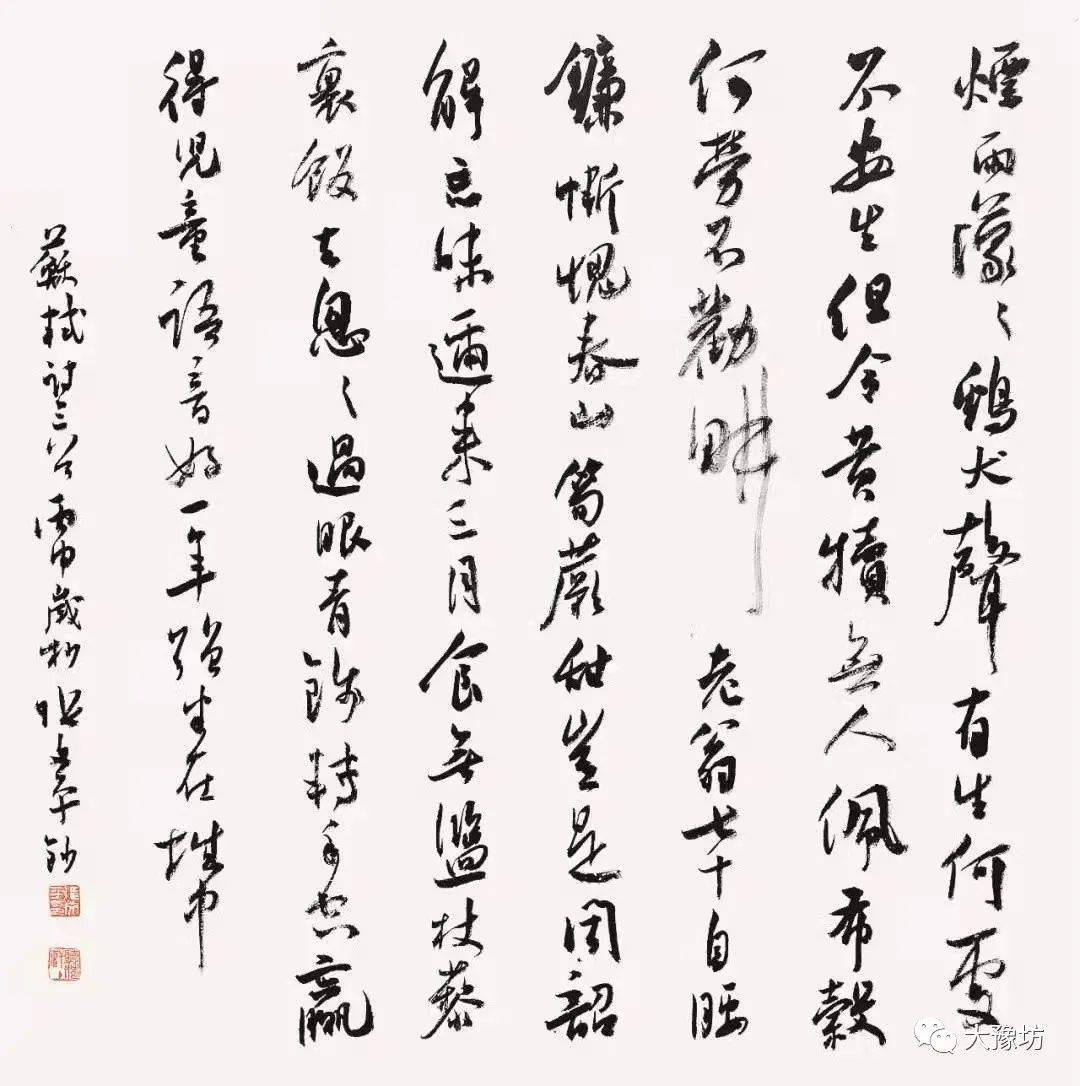 煙雨濛々鷄犬聲有生何處
不安生但令黄犢無人佩布穀
何勞不勸畊老翁七十自腰
鐮慚愧春山筍蕨甜豈是聞韶
解忘味邇来三月食無鹽杖藜
裹飯去怱々過眼青錢轉手空贏
得兒童語音好一年强半在城中
蘇軾詩三首丙申歲杪平鈔
大豫坊